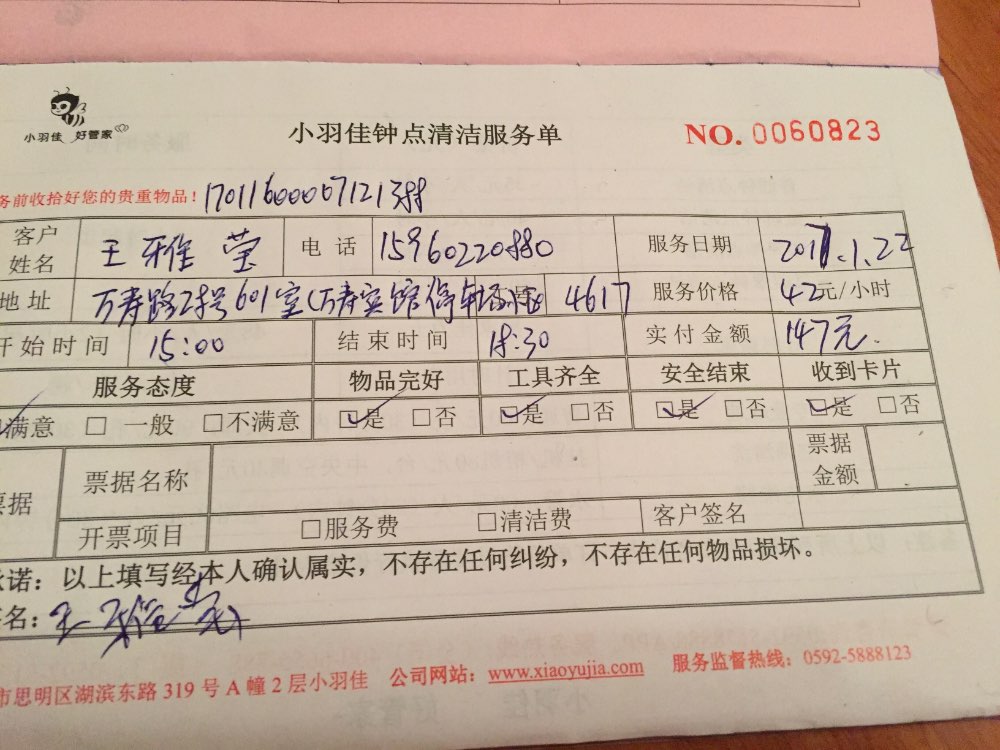 小羽佳 好管家
小羽佳钟点清洁服务单
NO. 0060823
务前收拾好您的贵重物品! 170116000067121
客户姓名 王雅莹 电话 15960220880 服务日期 2017.1.22
地址 万寿路 号601室(万寿宾馆停车场 4617 服务价格 42元/小时
开始时间 15:00 结束时间 18:30 实付金额 147元.
服务态度 物品完好 工具齐全 安全结束 收到卡片
满意 □ 一般 □不满意 ☑是 □否 ☑是 □否 ☑是 □否 ☑是 □否
票据 票据名称 票据金额
开票项目 □服务费 □清洁费 客户签名
承诺:以上填写经本人确认属实,不存在任何纠纷,不存在任何物品损坏。
签名: 王雅莹
市思明区湖滨东路 319 号 A 幢 2 层小羽佳 公司网站:www.xiaoyujia.com 服务监督热线:0592-5888123